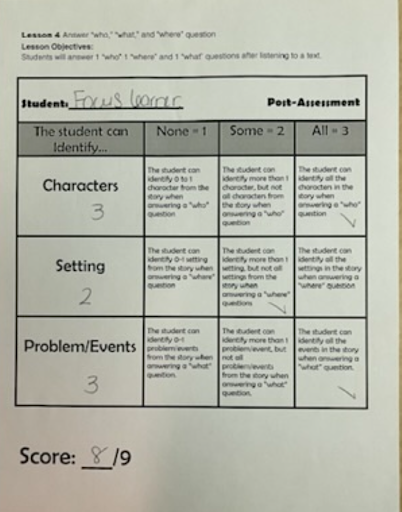 Lesson 4 Answer "who," "what," and "where" question
Lesson Objectives:
Students will answer 1 "who" 1 "where" and 1 "what" questions after listening to a text.
Student: Focus learner Post-Assessment
The student can Identify... None = 1 Some = 2 All = 3
Characters
3
The student can
identify 0 to 1
character from the
story when
answering a "who"
question
The student can
identify more than 1
character, but not
all characters from
the story when
answering a "who"
question
The student can
identify all the
characters in the
story when
answering a "who"
question
Setting
2
The student can
identify 0-1 setting
from the story when
answering a "where"
question
The student can
identify more than 1
setting, but not all
settings from the
story when
answering a "where"
questions
The student can
identify all the
settings in the story
when answering a
"where" question
Problem/Events
3
The student can
identify 0-1
problem/events
from the story when
answering a "what"
question.
The student can
identify more than 1
problem/event, but
not all
problem/events
from the story when
answering a "what"
question.
The student can
identify all the
events in the story
when answering a
"what" question.
Score: 8/9